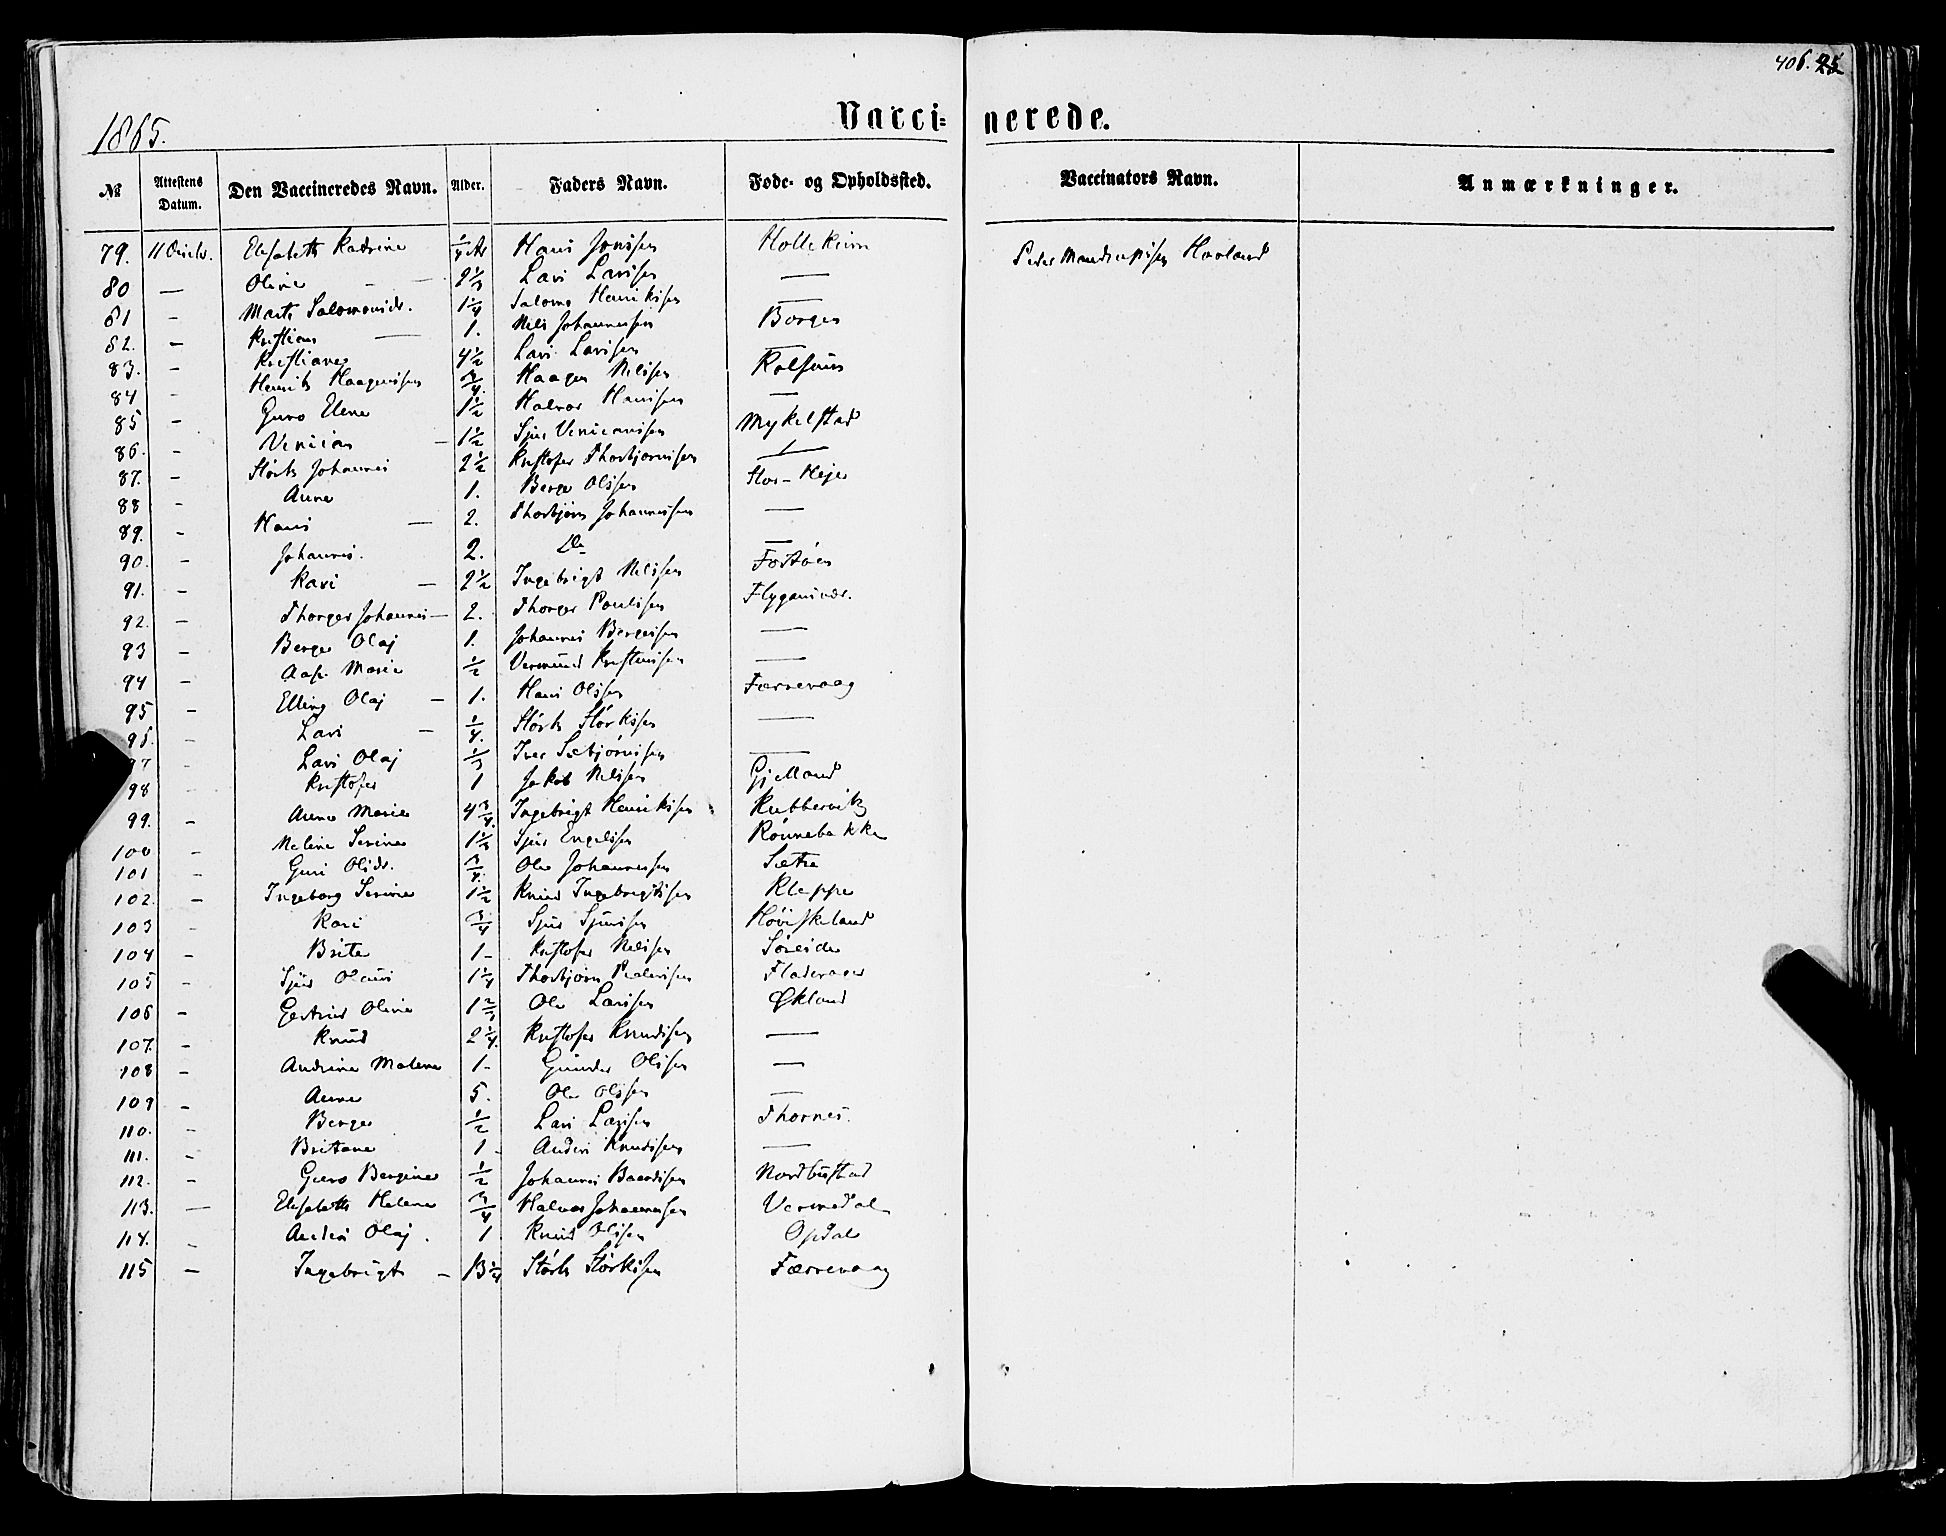 406. 25
1865.
Vacci= nerede.
№ Attestens Datum. Den Vaccineredes Navn. Alder. Faders Navn. Føde- og Opholdssted. Vaccinators Navn. Anmærkninger.
79. 11 Elisabeth Kadrine 1/4 Ar Hans Jonssen Holleheim Peder Haaland
80 — Oline — Lars Larssen —
81 - Salamonsdr. 1 1/4 Salomo Henrikssen —
82. - Kristian — 1. Nels Johannessen Borgen
83. - Kristiane 4 1/2 Lars Larssen —
84 - Henrik Haagenssen 3/4. Haagen Nelssen Kolsnes
85 - Guro Elene 1 1/2 Halvor Hanssen —
86. - Verician — 1 1/2 Sjur Mykelstad
87. - Størk Johannes 2 1/2 Kristofer Thorbjørnssen —
88 - Anne 1. Berge Olssen Stor-
89. - Hans — 2. Thorbjørn Johannessen —
90. - Johannes. 2. Do —
91. - Kari — 2 1/2 Ingebrigt Nelssen
92. - Thorger Johannes — 2. Thorger Poulssen
93 - Berge Olaj 1. Johannes Bergessen —
94 - Marie 1/2 Vermund —
95 - Elling Olaj — 1. Hans Olssen Færrevaag
96. - Lars — 1/4. Størk Størkssen —
97 - Lars Olaj 1/3 Iver Sæbjørnssen —
98 - Kristofer 1 Jakob Nelssen Gjelland
99. - Anne Marie 4 3/4. Ingebrigt Henrikssen Kubbervik
100 - Serine Sjur Engelssen Rønnebakke
101 - Guri Olsdr. 3/4. Ole Johannessen Sætre
102. - Ingeborg Serine 1 1/2 Knud Ingebrigtssen Kleppe
103 - Kari 3/4 Sjur Sjurssen Høviskeland
104 - Brite 1- Kristofer Nelssen Søreide
105 - Sjur Olaus 1 1/4 Thorbjørn Pederssen Fladerager
106 - Gertrud Oline Ole Larssen Økland
107. - Knud 2 1/4. Kristofer Knudssen —
108 - Andrine Malene 1- Gunder Olssen —
109 - Anne 5. Ole Olssen —
110. - Berge 1/2 Lars Larssen Thornes.
111. - Britane 1 - Anders Knudssen —
112. - Guro Bergine 1/2 Johannes Baardssen Nordbustad
113. — Elisabeth Helene 3/4 Halvor Johannessen Vermedal
114. - Anders Olaj. 1 Knud Olssen Opdal
115 — Ingebrigt — 13 1/4 Størk Størkssen Færrevaag